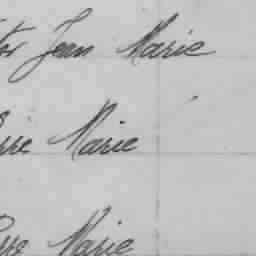 tor Jean Marie
rre Marie
rre Marie